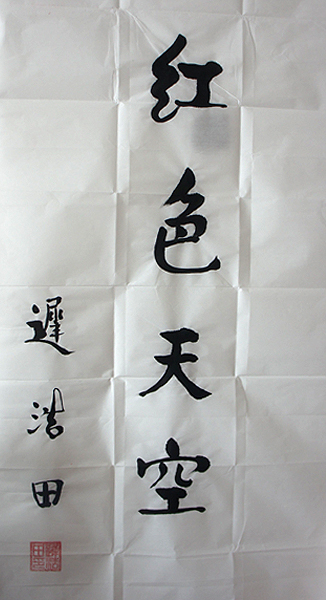 红色天空
遲浩田